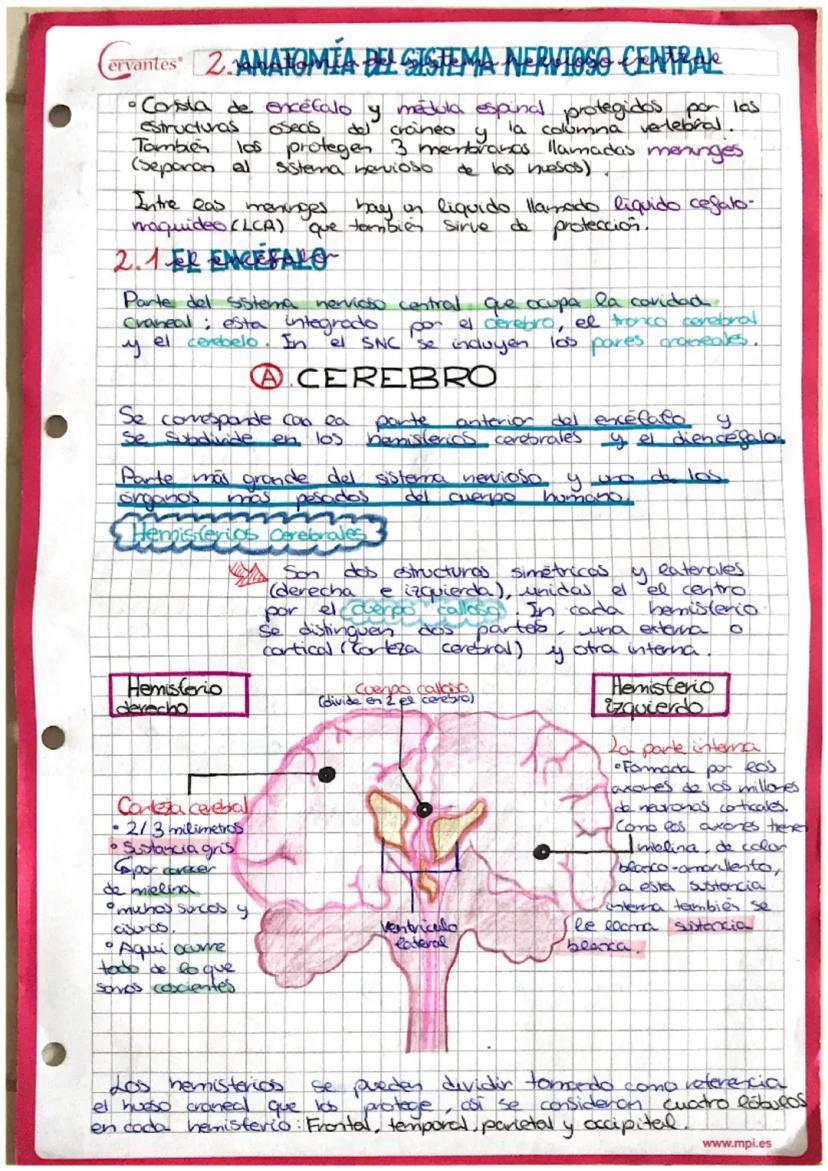 Cervantes®
2. ANATOMÍA DEL SISTEMA NERVIOSO CENTRAL
° Consta de encéfalo y médula espinal protegidos por las
estructuras óseas del cráneo y la columna vertebral.
También los protegen 3 membranas llamadas meninges
(separan el sistema nervioso de los huesos).
Entre las meninges hay un líquido llamado líquido cefalo-
rraquídeo (LCR) que también sirve de protección.
2.1 EL ENCÉFALO
Parte del sistema nervioso central que ocupa la cavidad
craneal; esta integrado por el cerebro, el tronco cerebral
y el cerebelo. En el SNC se incluyen los pares craneales.
A. CEREBRO
Se corresponde con la parte anterior del encéfalo y
se subdivide en los hemisferios cerebrales y el diencéfalo.
Parte más grande del sistema nervioso y uno de los
órganos más pesados del cuerpo humano.
Hemisferios cerebrales
Son dos estructuras simétricas y laterales
(derecha e izquierda), unidas el el centro
por el cuerpo calloso. En cada hemisferio
se distinguen dos partes, una externa o
cortical (corteza cerebral) y otra interna.
Hemisferio
derecho
Cuerpo calloso
(divide en 2 el cerebro)
Hemisferio
izquierdo
Corteza cerebral
° 2/3 milimetros
° Sustancia gris
por carecer
de mielina
° muchos surcos y
cisuras.
° Aquí ocurre
todo de lo que
somos coscientes
ventrículo
lateral
La parte interna
° Formada por los
axones de los millones
de neuronas corticales.
Como los axones tienen
mielina, de color
blanco-amarillento,
a esta sustancia
interna también se
le llama sustancia
blanca.
Los hemisferios se pueden dividir tomando como referencia
el hueso craneal que los protege, así se consideran cuatro lóbulos
en cada hemisferio: Frontal, temporal, parietal y occipital.
www.mpi.es